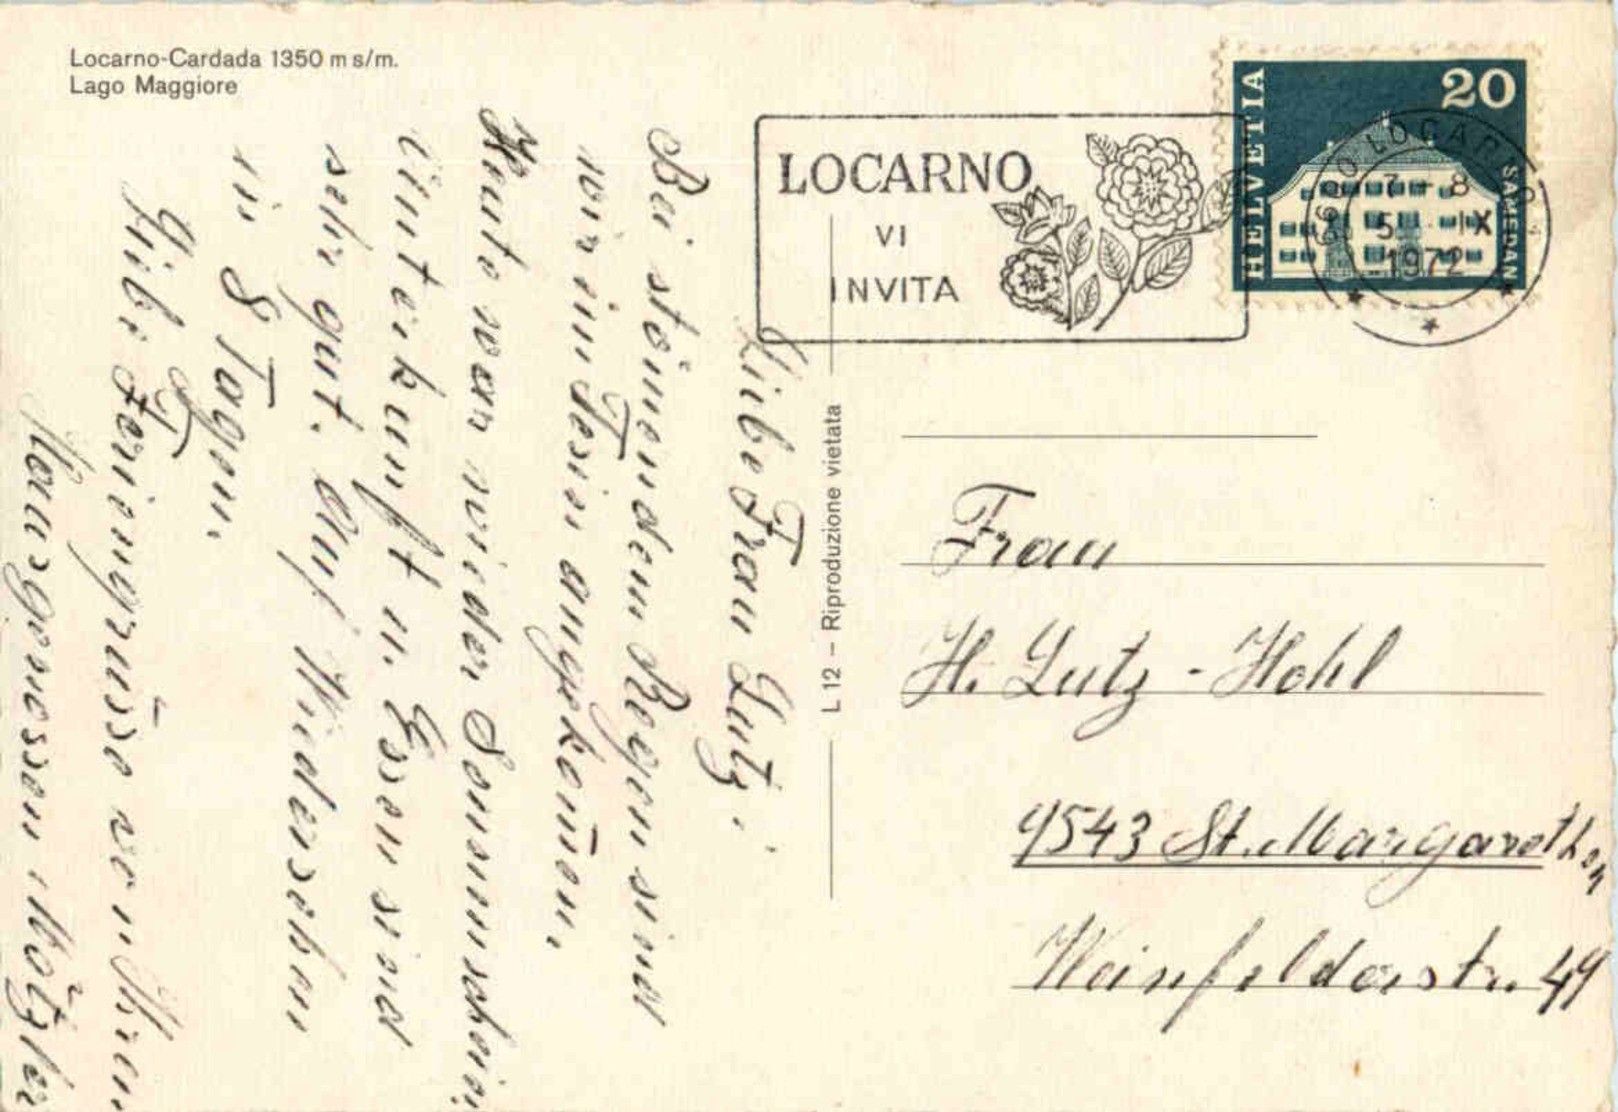 Locarno-Cardada 1350 m s/m.
Lago Maggiore
LOCARNO
VI
INVITA
HELVETIA
20
SAMEDAN
6600 LOCARNO 1
7 - 8
5 IX
1972
L 12 – Riproduzione vietata
Liebe Frau Lutz,
Bei strömendem Regen sind
wir im Tessin angekom̅en.
Heute war wieder Sonnenschein,
Unterkunft u. Essen sind
sehr gut. Auf Wiedersehen
in 8 Tagen.
Liebe Feriengrüsse von Ihren
Hausgenossen
Frau
H. Lutz - Hohl
9543 St. Margarethen
Weinfelderstr. 49